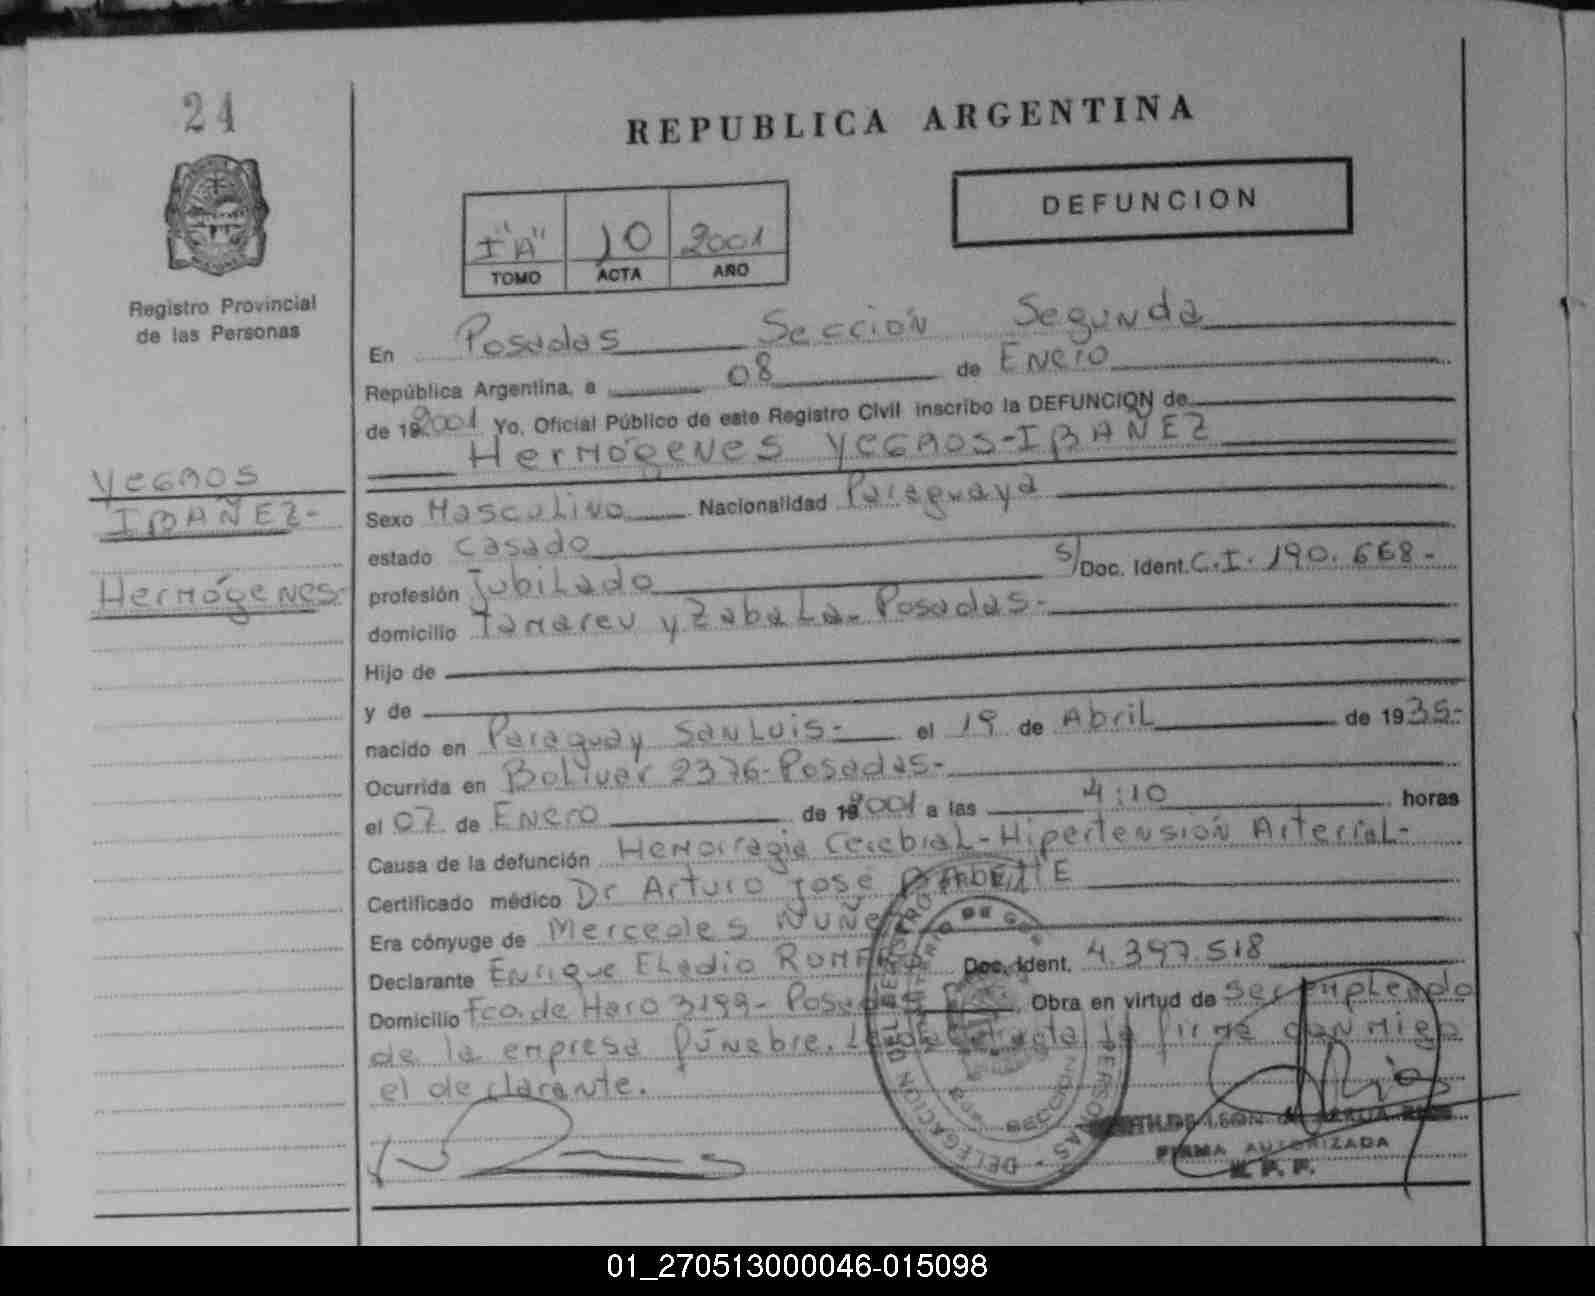 24
REPUBLICA ARGENTINA
DEFUNCION
I "A" 10 2001
TOMO ACTA AÑO
Registro Provincial
de las Personas
En Posadas Sección Segunda
República Argentina, a 08 de Enero
de 192001 Yo, Oficial Público de este Registro Civil inscribo la DEFUNCION de
Hermógenes YEGROS-IBAÑEZ
YEGROS
IBAÑEZ-
Hermógenes-
Sexo Masculino Nacionalidad Paraguaya
estado casado
profesión Jubilado S/Doc. Ident. C.I. 190.668-
domicilio Tamareu y Zabala- Posadas-
Hijo de
y de
nacido en Paraguay San Luis- el 19 de Abril de 1935-
Ocurrida en Bolivar 2376-Posadas-
el 07 de Enero de 192001 a las 4:10 horas
Causa de la defunción Hemorragia Cerebral-Hipertensión Arterial-
Certificado médico Dr Arturo José
Era cónyuge de Mercedes Nuñez
Declarante Enrique Eladio Doc. Ident. 4.397.518
Domicilio Fco. de Haro 3199- Posadas Obra en virtud de ser empleado
de la empresa fúnebre. acta la firma conmigo
el declarante.
DELEGACION DEL REGISTRO PERSONAS
SECCION
FIRMA AUTORIZADA
01_270513000046-015098